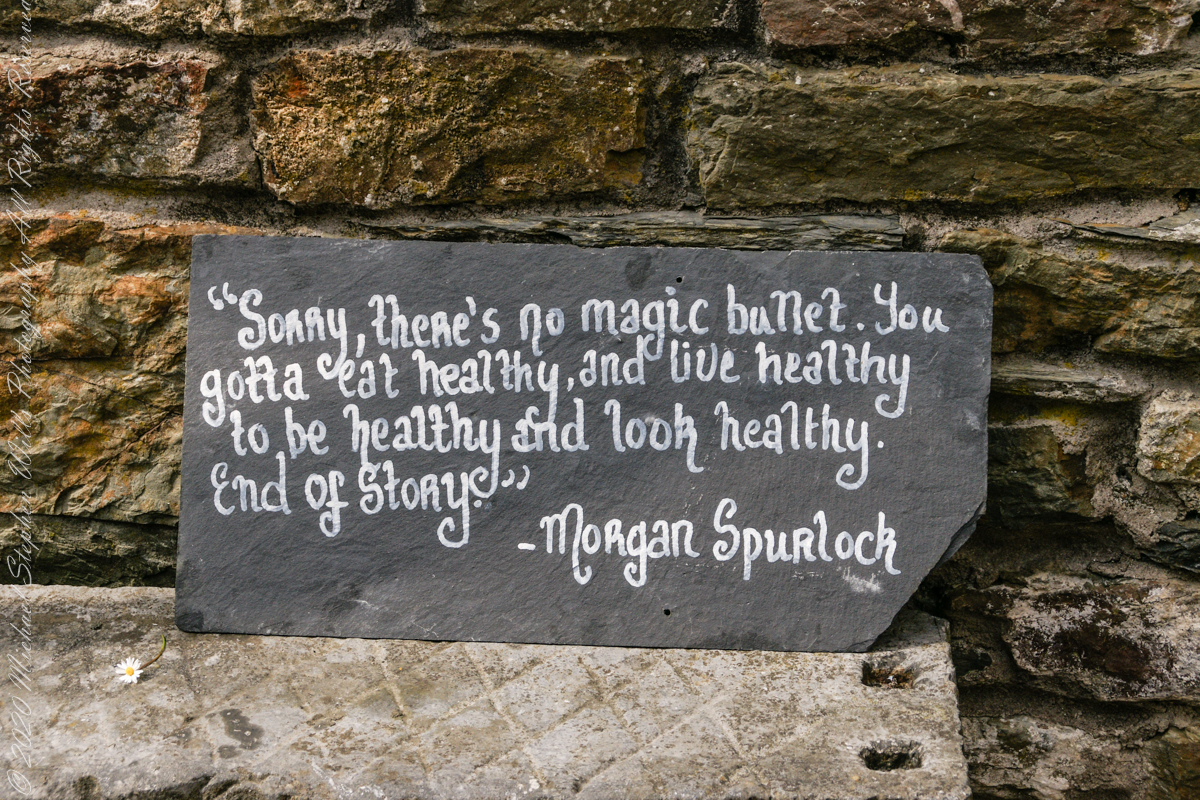 “Sorry, there's no magic bullet. You
gotta eat healthy, and live healthy
to be healthy and look healthy.
End of Story.”
-Morgan Spurlock
© 2020 Michael Stephen Wills Photography All Rights Reserved